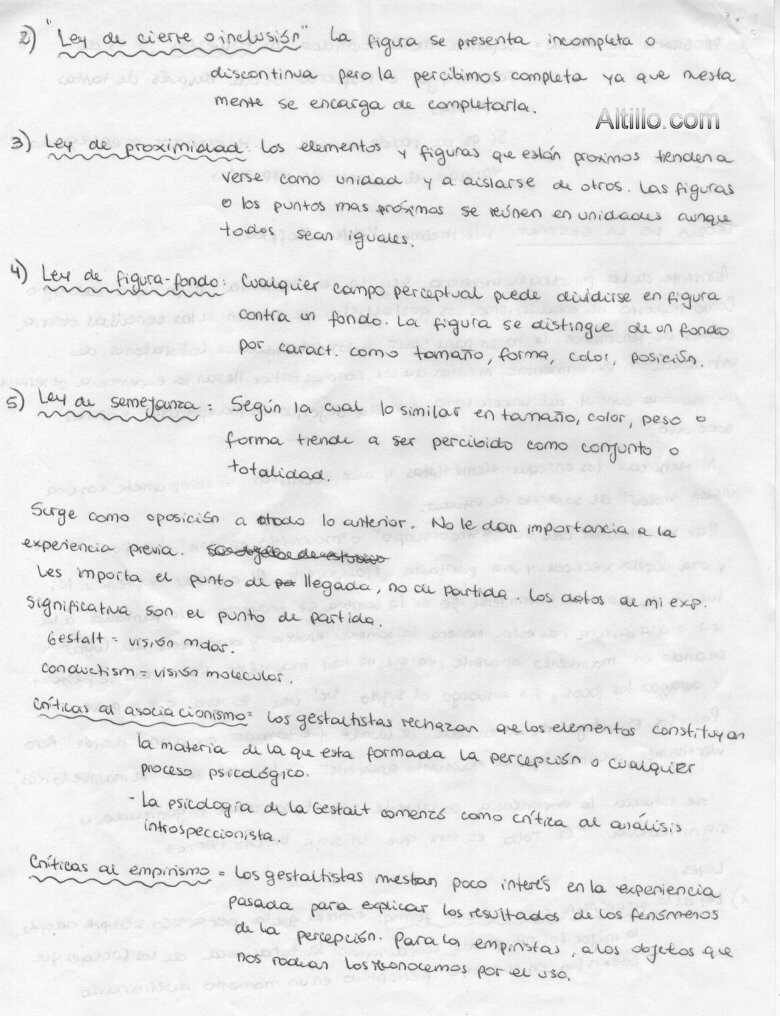 2) "Ley de cierre o inclusión" La figura se presenta incompleta o
discontinua pero la percibimos completa ya que nuesta
mente se encarga de completarla.
Altillo.com
3) Ley de proximidad. Los elementos y figuras que están proximos tienden a
verse como unidad y a aislarse de otros. Las figuras
o los puntos mas próximos se reúnen en unidades aunque
todos sean iguales.
4) Ley de figura-fondo: Cualquier campo perceptual puede dividirse en figura
contra un fondo. La figura se distingue de un fondo
por caract. como tamaño, forma, color, posición.
5) Ley de semejanza: Según la cual lo similar en tamaño, color, peso o
forma tiende a ser percibido como conjunto o
totalidad.
Surge como oposición a todo lo anterior. No le dan importancia a la
experiencia previa.
Les importa el punto de llegada, no de partida. Los datos de mi exp.
significativa son el punto de partida.
Gestalt = visión molar.
conductism = visión molecular.
Críticas al asociacionismo = Los gestaltistas rechazan que los elementos constituyan
la materia de la que esta formada la percepción o cualquier
proceso psicológico.
- La psicología de la Gestalt comenzó como crítica al análisis
introspeccionista.
Críticas al empirismo = Los gestaltistas muestran poco interés en la experiencia
pasada para explicar los resultados de los fenómenos
de la percepción. Para los empiristas, a los objetos que
nos rodean los reconocemos por el uso.